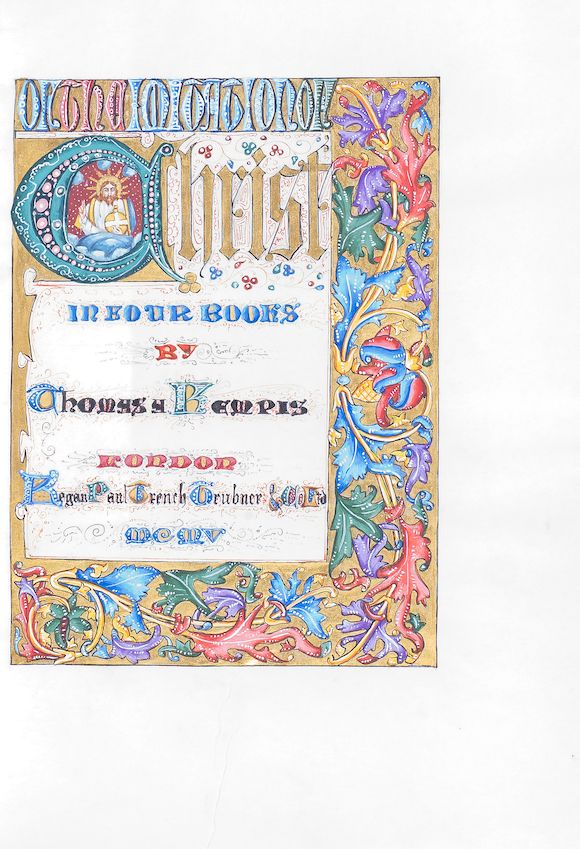 Of The Imitation of
Christ
IN FOUR BOOKS
BY
Thomas A Kempis
LONDON
Kegan Paul Trench Trübner & Co Ltd
MCMV